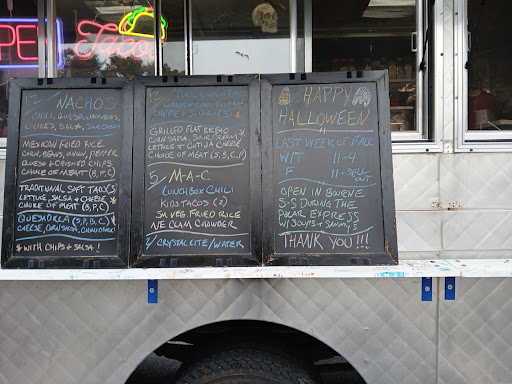 PEN
Tacos
NACHOS
MEXICAN FRIED RICE
CORN, BEANS, ONION, PEPPER
QUESO & CRUSHED CHIPS
CHOICE OF MEAT (B, P, C)
TRADITIONAL SOFT TACO'S
LETTUCE, SALSA & CHEESE
CHOICE OF MEAT (S, P, C)
QUESADILLA (S, P, B, C)
CHEESE, CORN SALSA,
* WITH CHIPS & SALSA!
GRILLED FLAT BREAD
CORN SALSA, SOUR CREAM
LETTUCE & COTIJA CHEESE
CHOICE OF MEAT (S, B, C, P)
5/ M-A-C
LUNCHBOX CHILI
KIDS TACOS (2)
SM VEG FRIED RICE
NE CLAM CHOWDER
2/ CRYSTAL LITE/WATER
HAPPY
HALLOWEEN
LAST WEEK OF FALL
W/T 11-4
F 11-SELL OUT
OPEN IN BOURNE
S-S DURING THE
POLAR EXPRESS
W/ SOUPS & SAMMY'S
THANK YOU!!!